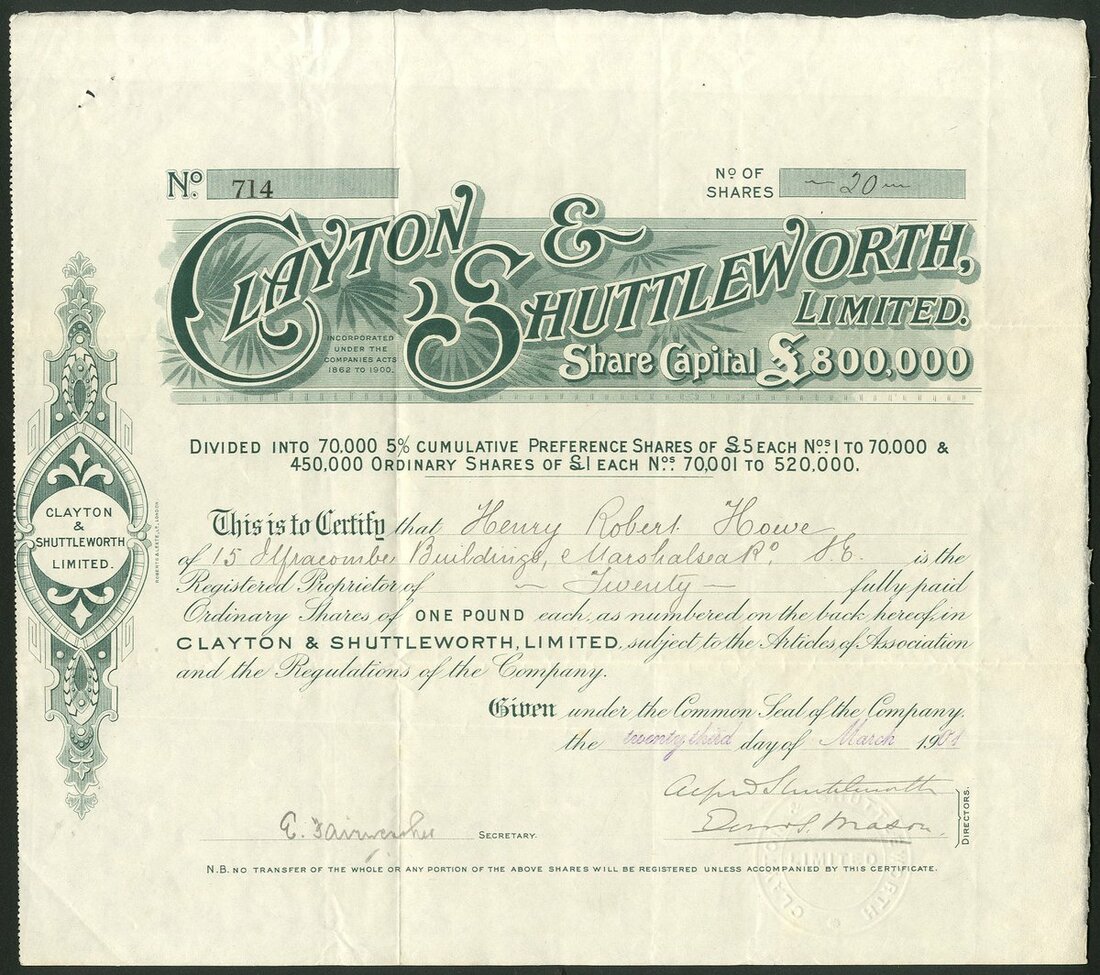 No. 714
No OF SHARES 20
CLAYTON & SHUTTLEWORTH,
LIMITED.
INCORPORATED
UNDER THE
COMPANIES ACTS
1862 TO 1900.
Share Capital £800,000
DIVIDED INTO 70.000 5% CUMULATIVE PREFERENCE SHARES OF £5 EACH Nos 1 TO 70.000 &
450,000 ORDINARY SHARES OF £1 EACH Nos 70,001 TO 520,000.
This is to Certify that Henry Robert Howe
of 15 Ilfracombe Buildings, Marshalsea Rd S.E is the
Registered Proprietor of — Twenty — fully paid
Ordinary Shares of ONE POUND each, as numbered on the back hereof, in
CLAYTON & SHUTTLEWORTH, LIMITED, subject to the Articles of Association
and the Regulations of the Company.
Given under the Common Seal of the Company.
the twenty third day of March 190
Alfred Shuttleworth
Mason
DIRECTORS.
SECRETARY.
N.B. NO TRANSFER OF THE WHOLE OR ANY PORTION OF THE ABOVE SHARES WILL BE REGISTERED UNLESS ACCOMPANIED BY THIS CERTIFICATE.
CLAYTON
&
SHUTTLEWORTH
LIMITED.
LIMITED